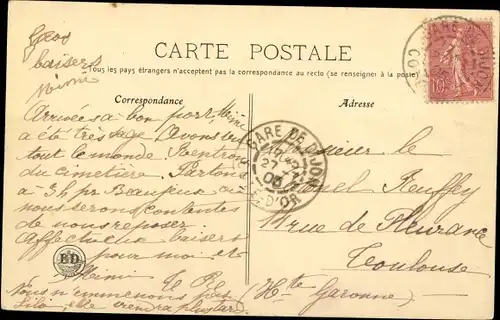 Gros
baisers
Mimi
CARTE POSTALE
Tous les pays étrangers n'acceptent pas la correspondance au recto (se renseigner à la poste)
Correspondance
Adresse
Arrivées à bon port. Mimi
a été très sage. Avons vu
tout le monde. Rentrons
du cimetière. Partons
à 3h pr Beaujeu où
nous serons contentes
de nous reposer.
Affectueux baisers
pour moi et
Mimi
Nous n'emmenons pas
Lili, elle viendra plus tard.
Monsieur le
Colonel
rue de Fleurance
Toulouse
Hte Garonne)
GARE DE DIJON
27
06
D'OR
10
BD